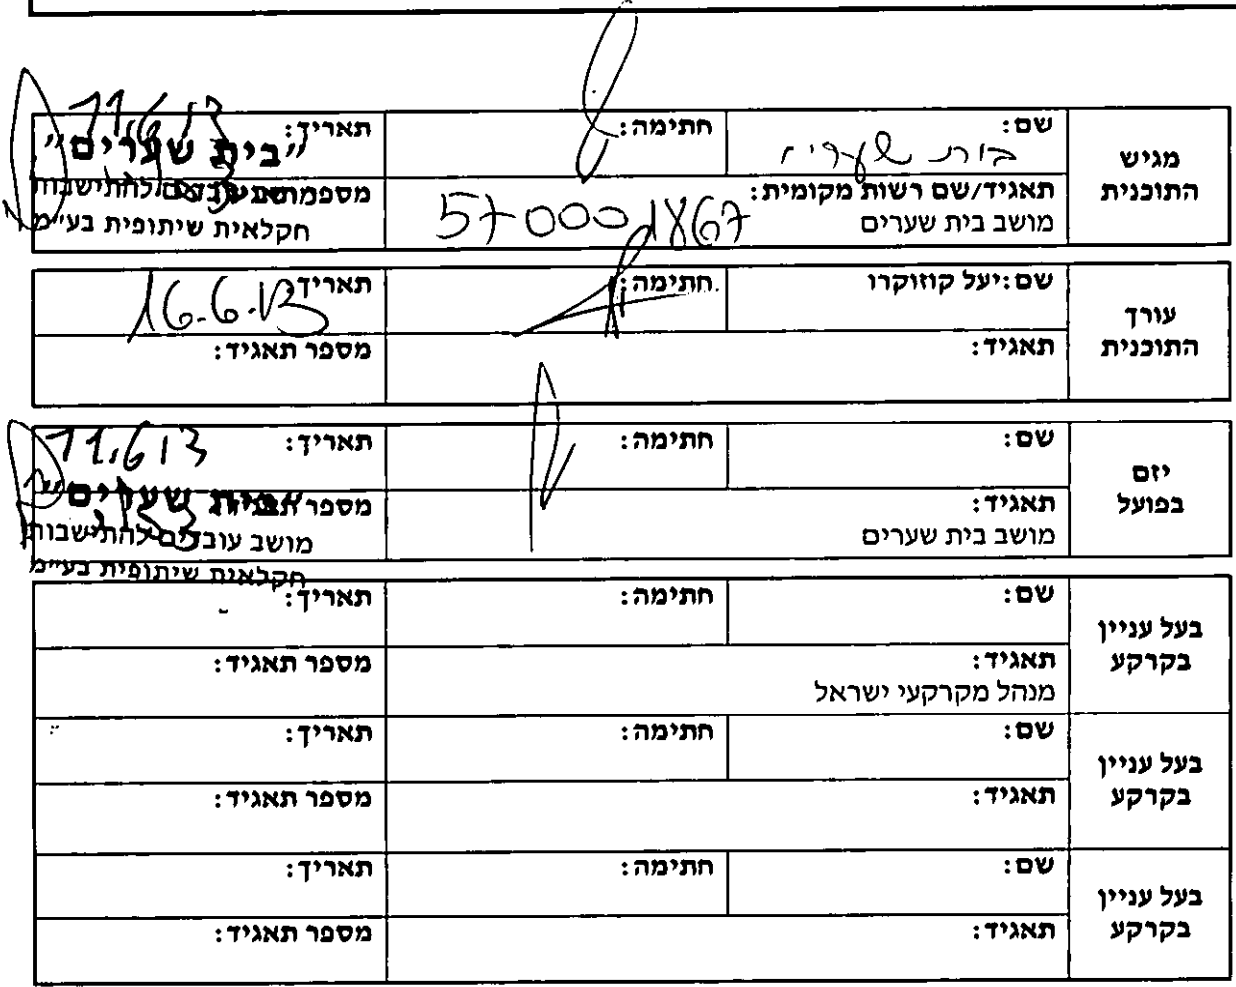 מגיש התוכנית
שם: בית שערים
חתימה:
תאריך: 11.6.13
תאגיד/שם רשות מקומית:
מושב בית שערים
570001867
מספר
"בית שערים"
מושב עובדים להתישבות
חקלאית שיתופית בע"מ
עורך התוכנית
שם: יעל קוזוקרו
חתימה:
תאריך: 16.6.13
תאגיד:
מספר תאגיד:
יזם בפועל
שם:
חתימה:
תאריך: 11.6.13
תאגיד:
מושב בית שערים
מספר תאגיד:
"בית שערים"
מושב עובדים להתישבות
חקלאית שיתופית בע"מ
בעל עניין בקרקע
שם:
חתימה:
תאריך:
תאגיד:
מנהל מקרקעי ישראל
מספר תאגיד:
בעל עניין בקרקע
שם:
חתימה:
תאריך:
תאגיד:
מספר תאגיד:
בעל עניין בקרקע
שם:
חתימה:
תאריך:
תאגיד:
מספר תאגיד: